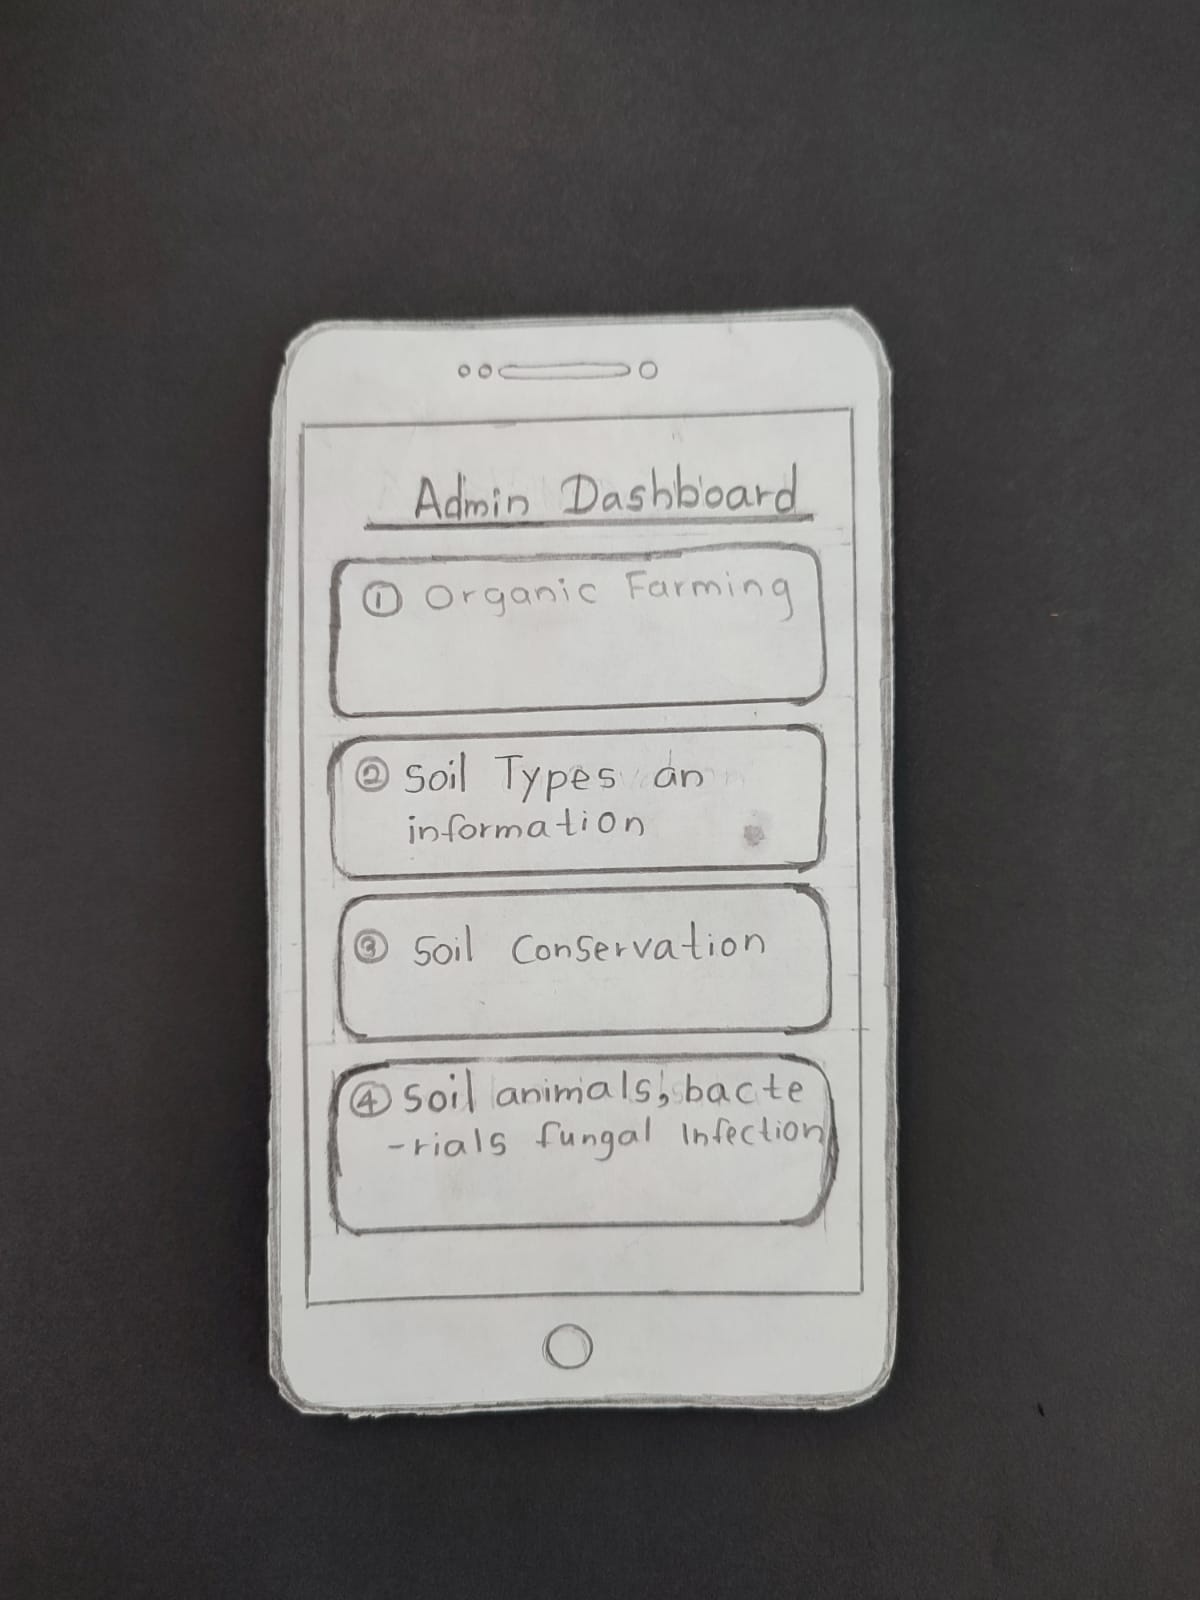 Admin Dashboard
① Organic Farming
② Soil Types an
information
③ Soil Conservation
④ Soil animals, bacte
-rials fungal Infection